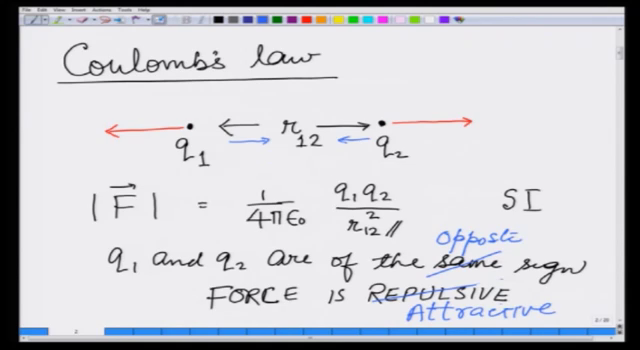 File Edit View Insert Actions Tools Help
Coulomb's law
r12
q1 q2
|F⃗| = 1/4πε0 q1q2/r12^2 SI
Opposte
q1 and q2 are of the same sign
FORCE IS REPULSIVE
Attractive
2
2 / 20